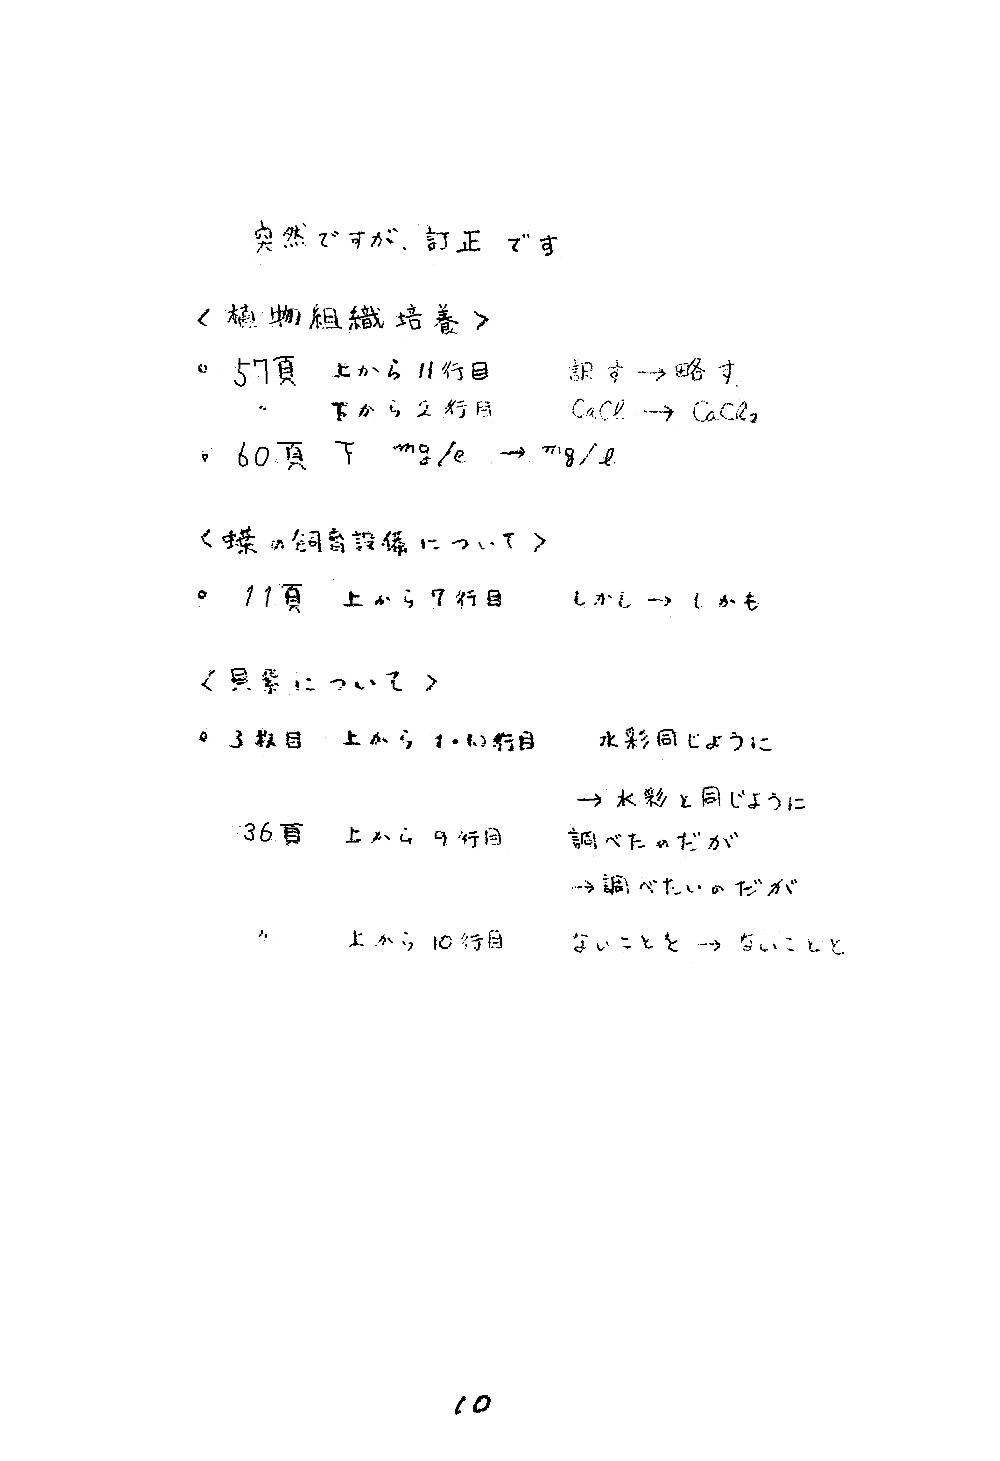 突然ですが、訂正です
〈植物組織培養〉
○ 57頁 上から11行目 訳す→略す
〃 下から2行目 CaCl → CaCl₂
○ 60頁 下 mg/e → mg/l
〈蝶の飼育設備について〉
○ 11頁 上から7行目 しかし→しかも
〈貝紫について〉
○ 3枚目 上から 行目 水彩同じように
→水彩と同じように
36頁 上から9行目 調べたのだが
→調べたいのだが
〃 上から10行目 ないことを→ないことと
10